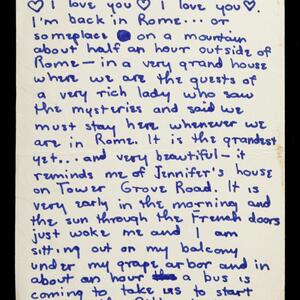 ♡ I love you ♡ I love you ♡.
I'm back in Rome... or
someplace on a mountain
about half an hour outside of
Rome — in a very grand house
where we are the guests of
a very rich lady who saw
the mysteries and said we
must stay here whenever we
are in Rome. It is the grandest
yet... and very beautiful — it
reminds me of Jennifer's house
on Tower Grove Road. It is
very early in the morning and
the sun through the French doors
just woke me and I am
sitting out on my balcony
under my grape arbor and in
about an hour a bus is
coming to take us to start